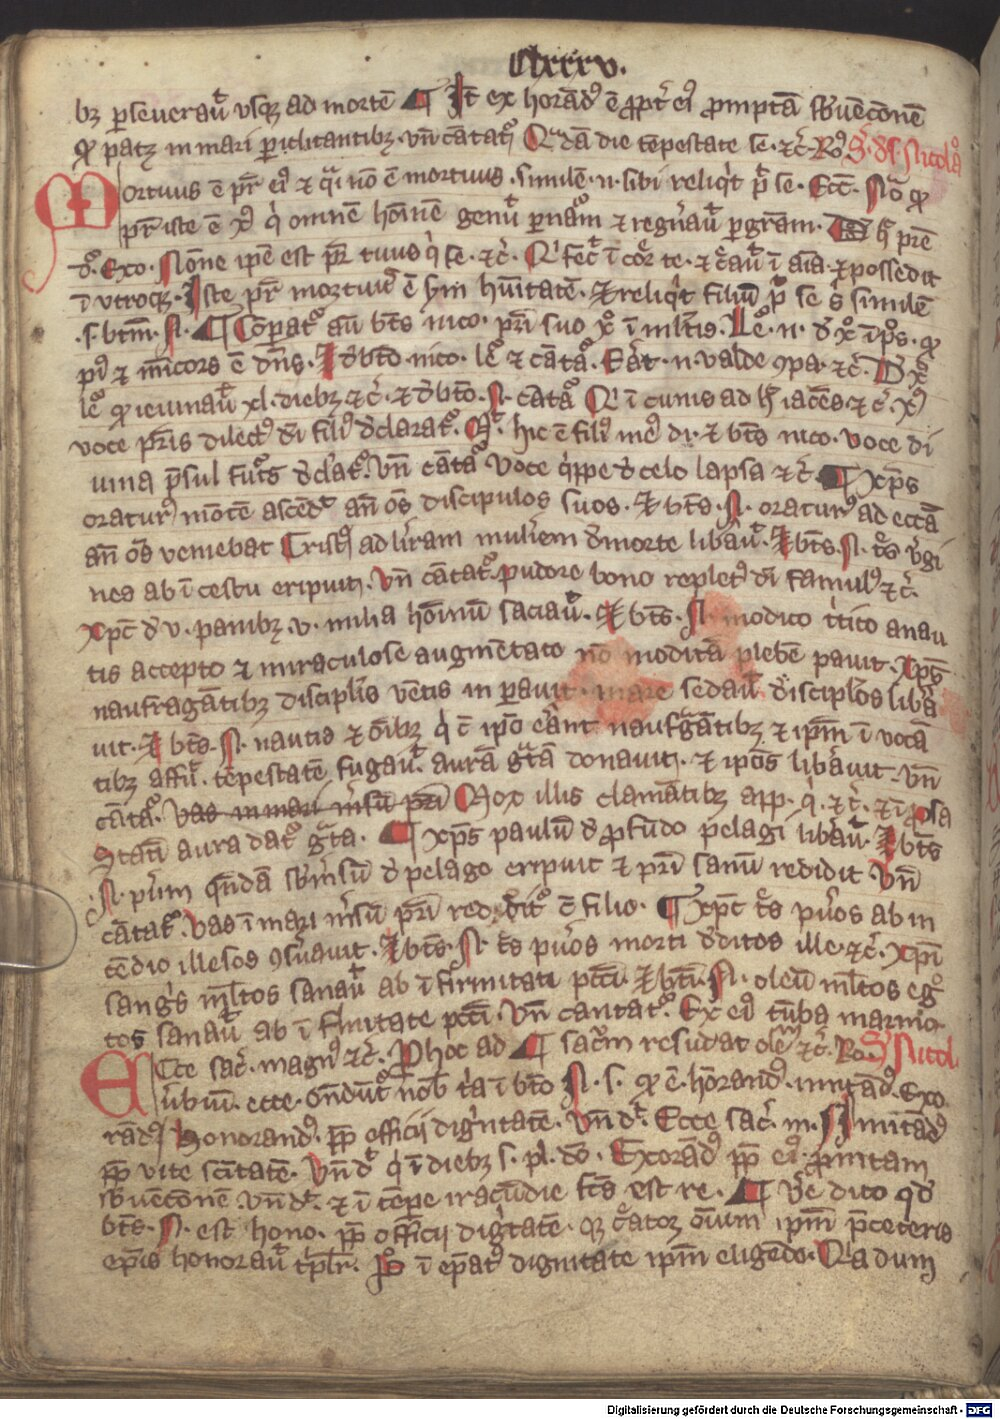 Clxxxv.
bꝫ ꝑseuerauͭ vsqꝫ ad mortē ¶ Itē ex horād ē ꝓpt̄ eiꝰ ꝓmptā sb̄uēcōnē
ꝙ patꝫ in mari ꝑiclitantibꝫ vn̄ cantatᷣ Qᷓdā die tēpestate se · ⁊c̄ · Ro S · de s · Nicola
Mortuus ē pr̄ eiꝰ ⁊ qᷓi nō ē mortuus · similē · n · sibi reliqͥt pᷤ se · Ecc̄ · Nō ꝙ
pr̄ iste ē xꝰ qͥ omnē hoīnē genuͭ ꝑ naᷓm ⁊ regn̄auͭ ꝑ gr̄am · hͦ prē
dꝰ · Exo · Nōne ip̄e est pr̄ tuus qͥ se · ⁊c̄ · Qͥ fēc ī cōr te · ⁊ cᷓauͭ ī aīa · ⁊ possedit
ī vtroqꝫ · Iste pr̄ mortuꝰ ē sᷤm hūitatē · ⁊ reliqͥt filiū pᷤ se sᷤ similē
· s · btm̄ · N · ¶ Cōꝑatᷣ aūt bt̄s nico · pri suo xᷣ ī ml̄tis · Leᷣ · n · d̄ xᷣ ī pᷤs · ꝙ
piꝰ ⁊ mīcors ē dn̄s · ⁊ d̄ btō nico · leᷣ ⁊ cātaᷣ · Erat · n · valde ꝯpa · ⁊c̄ · D̄ xᷣ
leᷣ ꝙ ieiunauͭ xl · diebꝫ ⁊c̄ · ⁊ d̄ btō · N · cātaᷣ Qͥ ī cunis ad hͨ iacēs ⁊c̄ · xꝰ
voce pr̄is dilectꝰ dī filiꝰ dēclaratᷣ · Mᷣ · hic ē filiꝰ meꝰ di · ⁊ bt̄s nico · voce di
uina pᷤsul futꝰs dēclatᷣ · vn̄ cātaᷣ voce qͥppe d̄ celo lapsa ⁊c̄ · ¶ xp̄s
oraturꝰ mōtē ascēdͭ an̄ oēs discipulos suos · ⁊ bt̄s · N · oraturꝰ ad eccā
an̄ oēs veniebat Cristꝰ ad līram mulierem d̄ morte libāuͭ · ⁊ bt̄s · N · tᷤs vͥgi
nes ab īcestu eripuit · vn̄ cātatᷣ · pudore bono repletꝰ dī famulꝰ ⁊c̄ ·
xp̄c d̄ v · panibꝫ · v · milia hoīnū saciauͭ · ⁊ bt̄s · N · modico tͥtico a nau
tis accepto ⁊ miraculose augmētato nō modicā plebē pauit · Xp̄s
naufragātibꝫ discipl̄is vētis inꝑauit mare sedauͭ discipl̄os libā
uit · ⁊ bt̄s · N · nautis ⁊ oībꝫ qͥ c̄ ip̄o erānt naufᷓgātibꝫ ⁊ ip̄m ī vocā
tibꝫ affuͭ · tēpestatē fugauͭ · aurā gᷓtā donauit · ⁊ ip̄os libāuit · vn̄
cātaᷣ · vas in mari mᷤsū pri Mox illis clamātibꝫ app · qͥ · ⁊c̄ · ⁊ ī ꝓsa
Statī aura datᷣ gᷓta · ¶ xp̄s paulū d̄ ꝓfūdo pelagi libāuͭ · ⁊ bt̄s
· N · pͥūm qn̄dā sbmͤsū d̄ pelago eripuit ⁊ pri sanū reddidit vn̄
cātatᷣ · vas ī mari mᷤsū pri redditᷣ c̄ filio · ¶ Xp̄c tᷤs pūos ab in
cēdio illesos ꝯsᷣuauit · ⁊ bt̄s · N · tᷤs pūos morti dēditos ille · ⁊c̄ · xp̄i
sangͥs ml̄tos sanauͭ ab ī firmitati pcc̄i · ⁊ btī · N · oleū ml̄tos egᷣ
tos sanauͭ ab ī firmitate pcc̄i · vn̄ cantatᷣ · Ex eiꝰ tūba marmo ·
Ecce sac̄ · magnꝰ ⁊c̄ · Ꝓ hoc ad ¶ sacᷣm resudat oleᷠ ⁊c̄ · Ro S Nicol
vͥbuꝫ · ecce · ondūtᷣ nob̄ tͥa ī btō N · s · ꝙ ē · hōrandꝰ · imitādꝰ · Exo
rādꝰ Honorandꝰ · ꝓp officij dignitatē · vn̄ dͭ · Ecce sac̄ · m · Imitādꝰ
ꝓp vite scītatē · vn̄ dͭ qͥ ī diebꝫ s · pl · dō · Exorādꝰ ꝓp eiꝰ · ꝓmtam
sb̄uēcōnē vn̄ dͭ · ⁊ ī tēpe iracūdie fᷤs est re · ¶ Vͤe dico qd̄
bt̄s · N · est hono · ꝓp officij dignitatē · qꝫ cᷓator oīum ip̄m p̄ ceteris
ep̄is honorauͭ tᷤpl̄r · Pͦ ī ep̄at dignitate ip̄m eligēdo · Qᷓa dum
Digitalisierung gefördert durch die Deutsche Forschungsgemeinschaft - DFG